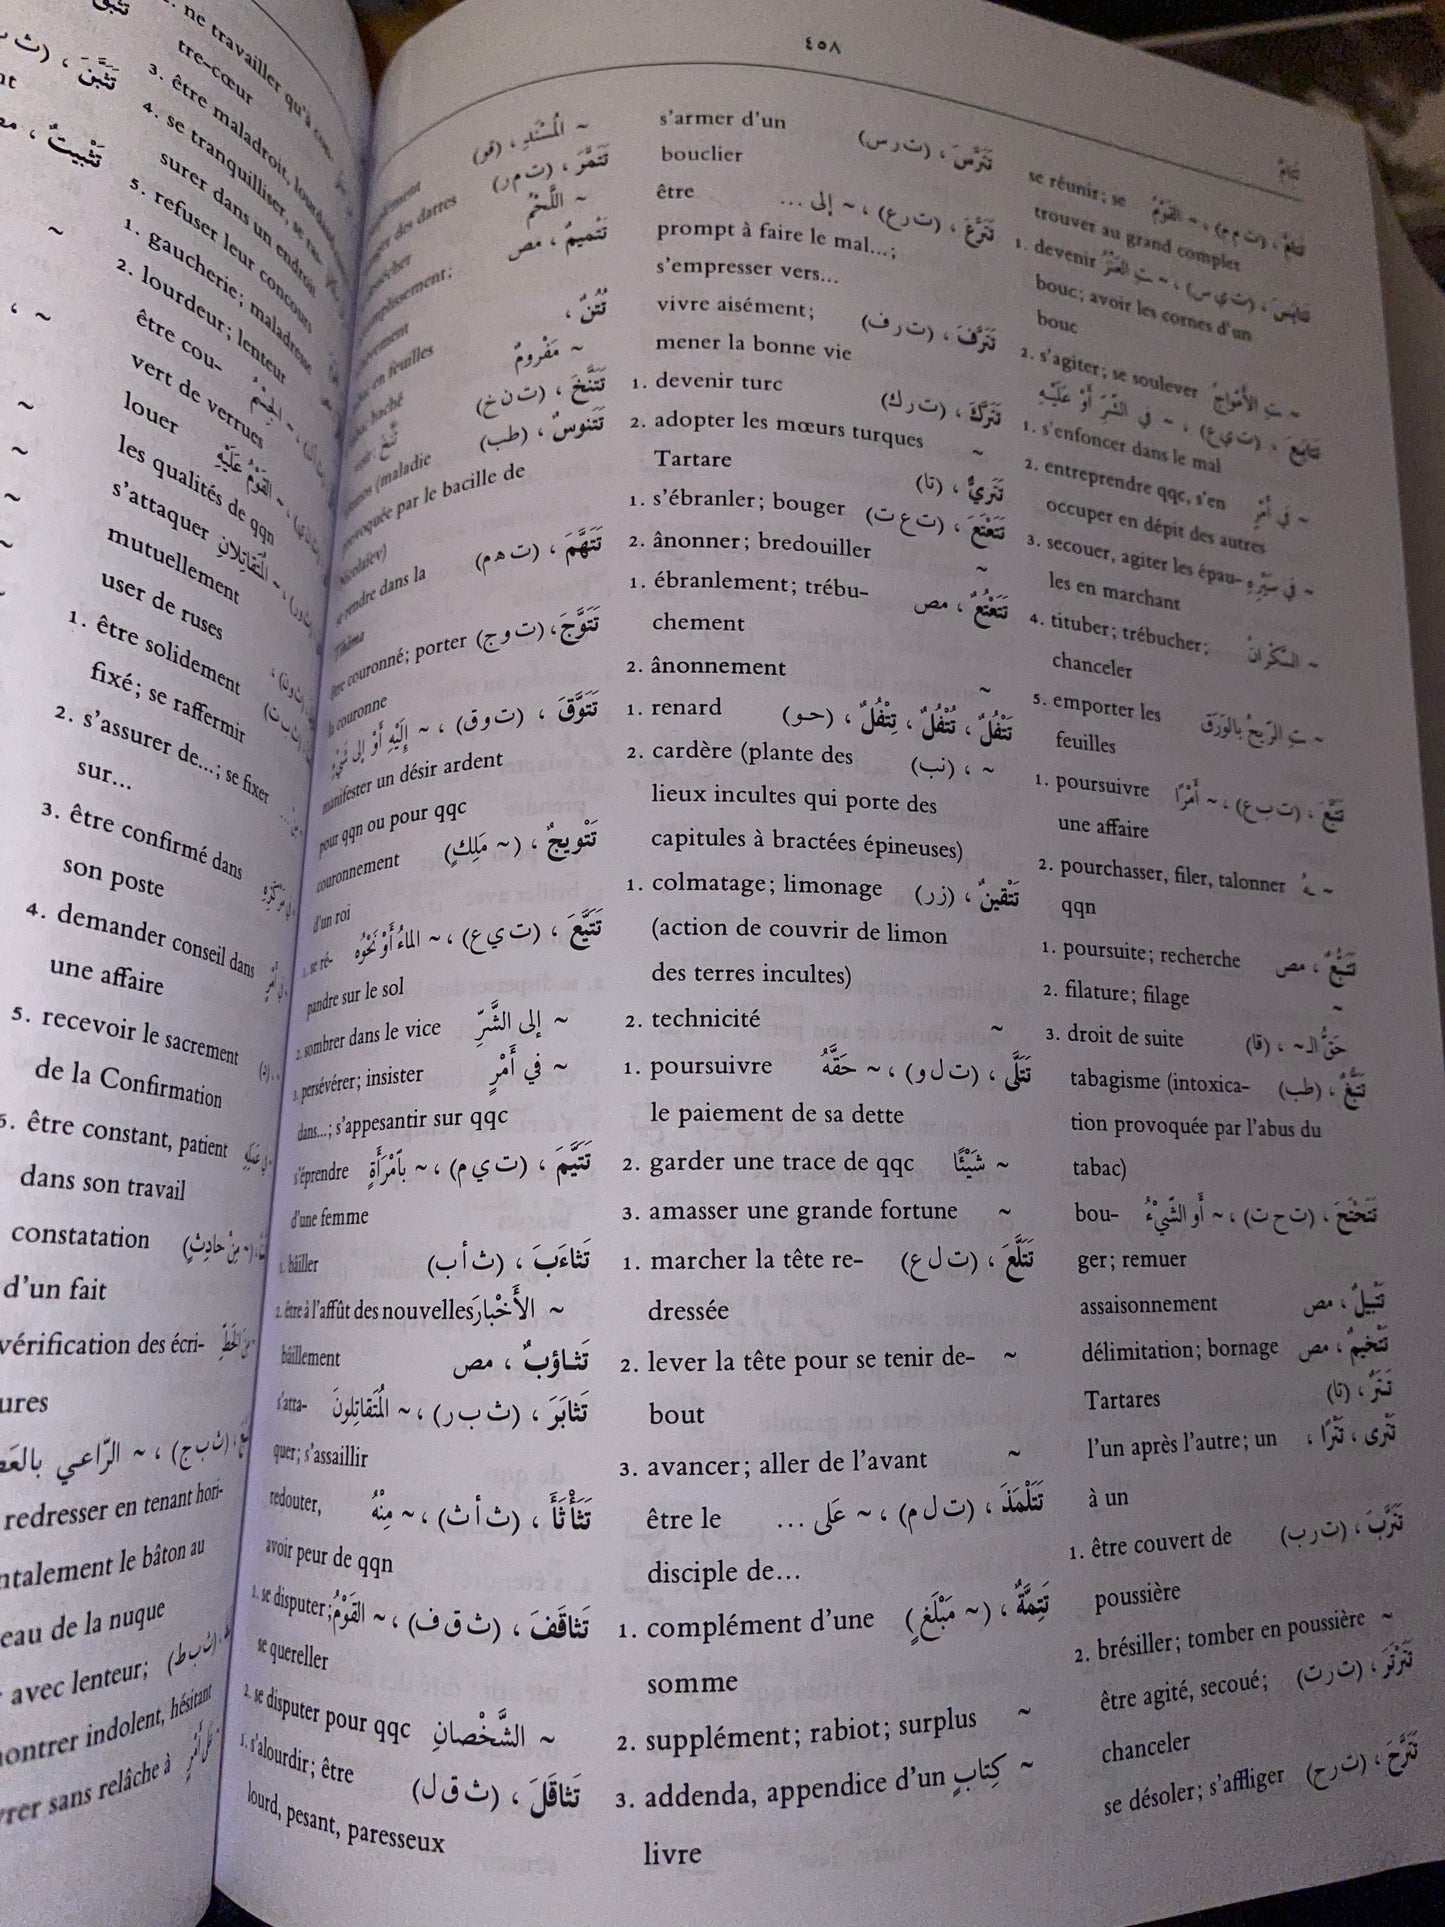 ٤٥٨
تَتامَّ ، (ت م م) ، ~ القَوْمُ se réunir ; se
trouver au grand complet
تَتايَسَ ، (ت ي س) ، ~ تِ العَنْزُ 1. devenir
bouc ; avoir les cornes d'un
bouc
~ تِ الأَمْواجُ 2. s'agiter ; se soulever
تَتايَعَ ، (ت ي ع) ، ~ في الشَّرِّ أَوْ عَلَيْهِ
1. s'enfoncer dans le mal
~ في أَمْرٍ 2. entreprendre qqc, s'en
occuper en dépit des autres
~ في سَيْرِهِ 3. secouer, agiter les épau-
les en marchant
~ السَّكْرانُ 4. tituber ; trébucher ;
chanceler
~ تِ الرّيحُ بِالوَرَقِ 5. emporter les
feuilles
تَتَبَّعَ ، (ت ب ع) ، ~ أَمْرًا 1. poursuivre
une affaire
~ هُ 2. pourchasser, filer, talonner
qqn
تَتَبُّعٌ ، مص 1. poursuite ; recherche
~ 2. filature ; filage
حَقُّ الـ~ ، (قا) 3. droit de suite
تَتَبُّغٌ ، (طب) tabagisme (intoxica-
tion provoquée par l'abus du
tabac)
تَتَحْتَحَ ، (ت ح ت) ، ~ أَو الشَّيْءُ bou-
ger ; remuer
تَتْبيلٌ ، مص assaisonnement
تَتْخيمٌ ، مص délimitation ; bornage
تَتَرٌ ، (تا) Tartares
تَتْرى ، تَتْرًا ، l'un après l'autre ; un
à un
تَتَرَّبَ ، (ت ر ب) 1. être couvert de
poussière
~ 2. brésiller ; tomber en poussière
تَتَرْتَرَ ، (ت ر ت) être agité, secoué ;
chanceler
تَتَرَّحَ ، (ت ر ح) se désoler ; s'affliger
تَتَرَّسَ ، (ت ر س) s'armer d'un
bouclier
تَتَرَّعَ ، (ت ر ع) ، ~ إلى ... être
prompt à faire le mal... ;
s'empresser vers...
تَتَرَّفَ ، (ت ر ف) vivre aisément ;
mener la bonne vie
تَتَرَّكَ ، (ت ر ك) 1. devenir turc
~ 2. adopter les mœurs turques
تَتَرِيٌّ ، (تا) Tartare
تَتَعْتَعَ ، (ت ع ت) 1. s'ébranler ; bouger
~ 2. ânonner ; bredouiller
تَتَعْتُعٌ ، مص 1. ébranlement ; trébu-
chement
~ 2. ânonnement
تَتْفُلٌ ، تُتْفُلٌ ، تِتْفُلٌ ، (حـو) 1. renard
~ ، (نب) 2. cardère (plante des
lieux incultes qui porte des
capitules à bractées épineuses)
تَتْقينٌ ، (زر) 1. colmatage ; limonage
(action de couvrir de limon
des terres incultes)
~ 2. technicité
تَتَلَّى ، (ت ل و) ، ~ حَقَّهُ 1. poursuivre
le paiement de sa dette
~ شَيْئًا 2. garder une trace de qqc
~ 3. amasser une grande fortune
تَتَلَّعَ ، (ت ل ع) 1. marcher la tête re-
dressée
~ 2. lever la tête pour se tenir de-
bout
~ 3. avancer ; aller de l'avant
تَتَلْمَذَ ، (ت ل م) ، ~ عَلى ... être le
disciple de...
تَتِمَّةٌ ، (~ مَبْلَغٍ) 1. complément d'une
somme
~ 2. supplément ; rabiot ; surplus
~ كِتابٍ 3. addenda, appendice d'un
livre
~ المُسْنَدِ ، (قو)
تَتَمَّرَ ، (ت م ر) des dattes
~ اللَّحْمُ
تَتْميمٌ ، مص
تُتُنٌ ، en feuilles
~ مَفْرومٌ haché
تَتَنَّخَ ، (ت ن خ)
تَتَنوسٌ ، (طب) (maladie
provoquée par le bacille de
Nicolaïev)
تَتَهَّمَ ، (ت ه م) se rendre dans la
Tihāma
تَتَوَّجَ ، (ت و ج) être couronné ; porter
la couronne
تَتَوَّقَ ، (ت و ق) ، ~ إِلَيْهِ أَوْ إلى شَيْءٍ
manifester un désir ardent
pour qqn ou pour qqc
تَتْويجٌ ، (~ مَلِكٍ) couronnement
d'un roi
تَتَيَّعَ ، (ت ي ع) ، ~ الماءُ أَوْ نَحْوُهُ 1. se ré-
pandre sur le sol
~ إلى الشَّرِّ 2. sombrer dans le vice
~ في أَمْرٍ 3. persévérer ; insister
dans... ; s'appesantir sur qqc
تَتَيَّمَ ، (ت ي م) ، ~ بِآمْرَأَةٍ s'éprendre
d'une femme
تَثاءَبَ ، (ث أ ب) 1. bâiller
~ الأَخْبارَ 2. être à l'affût des nouvelles
تَثاؤُبٌ ، مص bâillement
تَثابَرَ ، (ث ب ر) ، ~ المُتَقاتِلونَ s'atta-
quer ; s'assaillir
تَثَأْثَأَ ، (ث أ ث) ، ~ مِنْهُ redouter,
avoir peur de qqn
تَثاقَفَ ، (ث ق ف) ، ~ القَوْمُ 1. se disputer ;
se quereller
~ الشَّخْصانِ 2. se disputer pour qqc
تَثاقَلَ ، (ث ق ل) 1. s'alourdir ; être
lourd, pesant, paresseux
ne travailler qu'à con-
tre-cœur
3. être maladroit, lourdaud
4. se tranquilliser, se ras-
surer dans un endroit
5. refuser leur concours
1. gaucherie ; maladresse
2. lourdeur ; lenteur
être cou-
vert de verrues
~ القَوْمُ عَلَيْهِ louer
les qualités de qqn
~ المُقاتِلانِ s'attaquer
mutuellement
user de ruses
1. être solidement
fixé ; se raffermir
2. s'assurer de... ; se fixer
sur...
3. être confirmé dans
son poste
4. demander conseil dans
une affaire
5. recevoir le sacrement
de la Confirmation
6. être constant, patient
dans son travail
(~ مِنْ حادِثٍ) constatation
d'un fait
vérification des écri-
ures
(ث ب ج) ، ~ الرّاعي بالعَصا
redresser en tenant hori-
ntalement le bâton au
eau de la nuque
(ث ب ط) avec lenteur ;
montrer indolent, hésitant
vrer sans relâche à
تَثَبَّنَ ،
تَثْبيتٌ ،